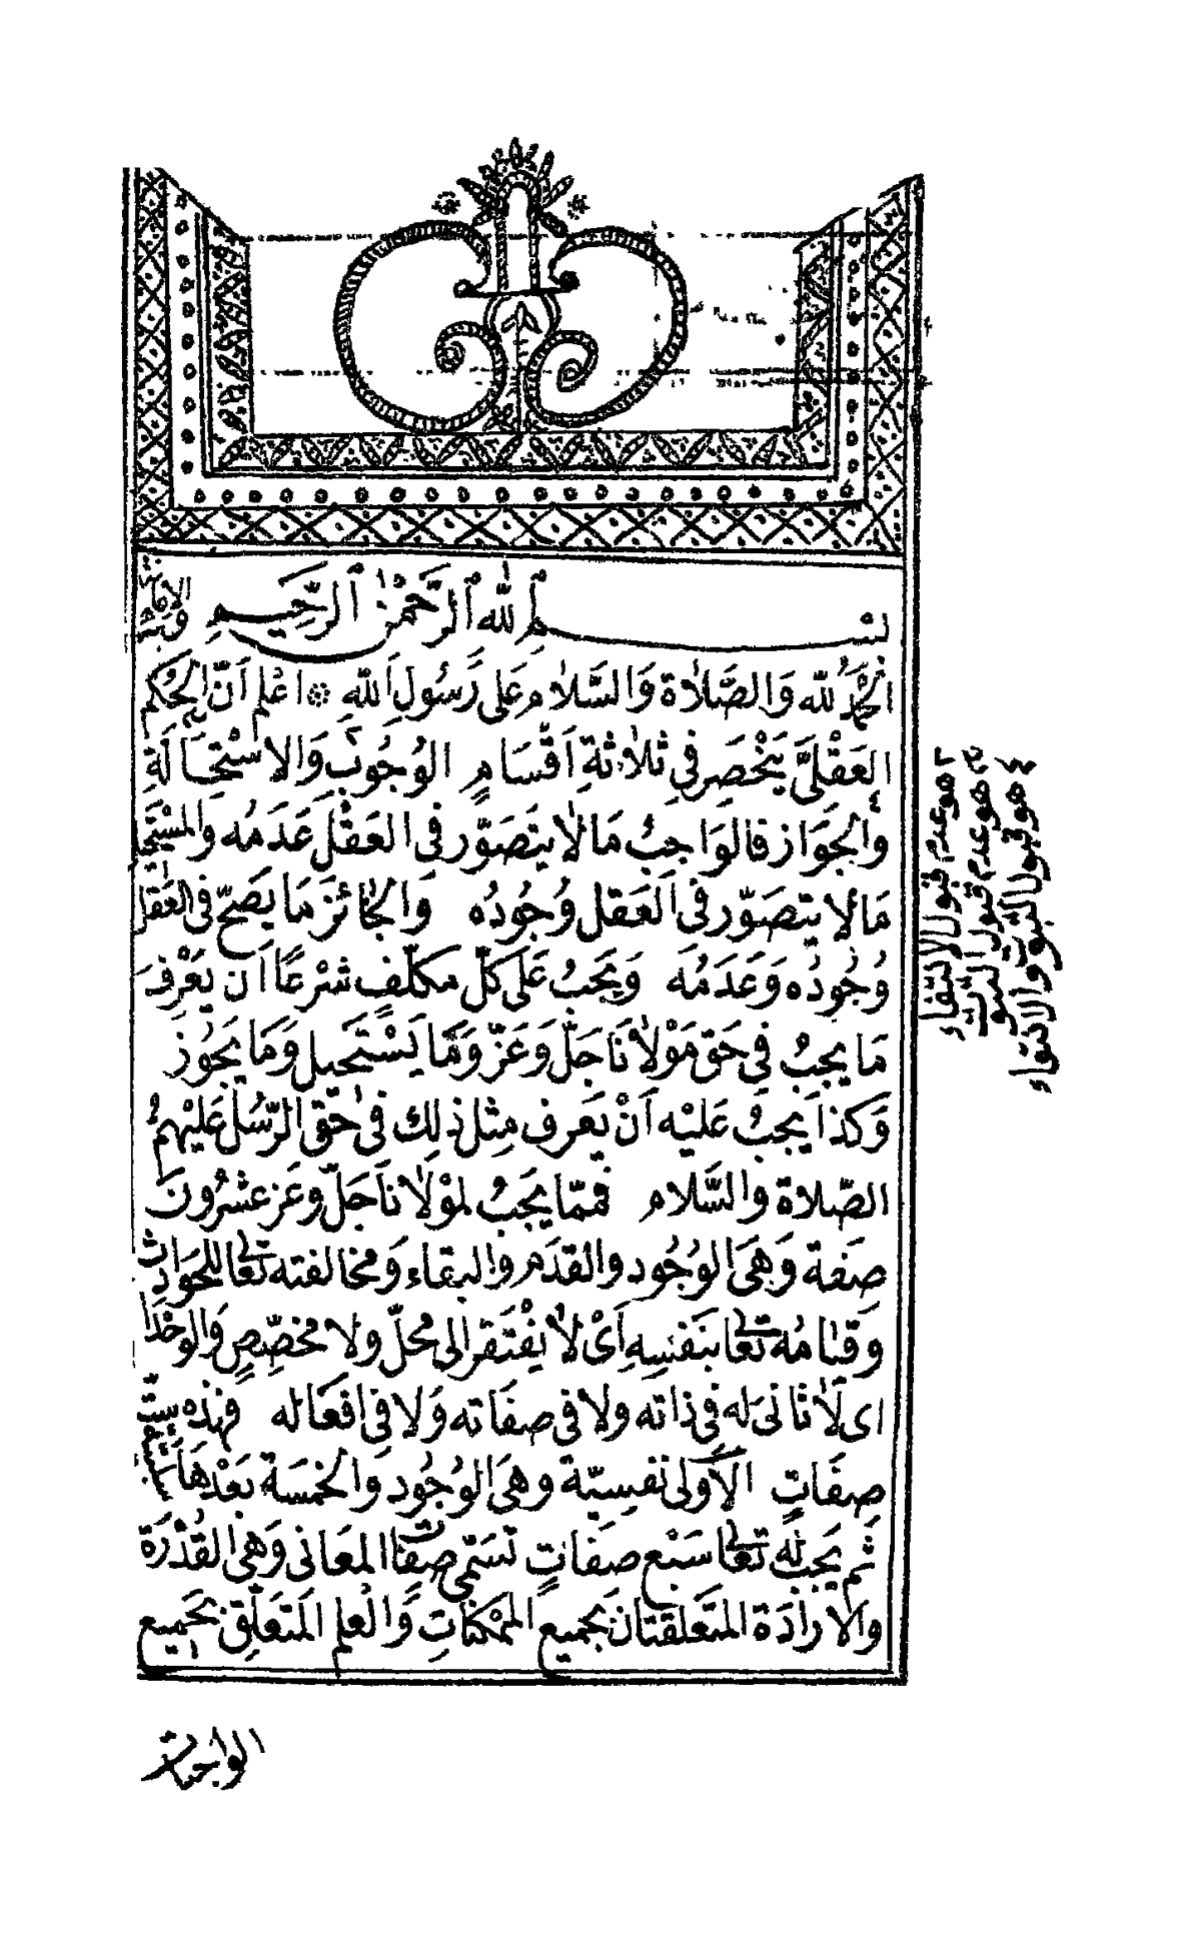 بسم الله الرحمن الرحيم
الحمد لله والصلاة والسلام على رسول الله اعلم أن الحكم
العقلي ينحصر في ثلاثة أقسام الوجوب والاستحالة
والجواز فالواجب مالا يتصور في العقل عدمه والمستحيل
مالا يتصور في العقل وجوده والجائز ما يصح في العقل
وجوده وعدمه ويجب على كل مكلف شرعا أن يعرف
ما يجب في حق مولانا جل وعز وما يستحيل وما يجوز
وكذا يجب عليه أن يعرف مثل ذلك في حق الرسل عليهم
الصلاة والسلام فمما يجب لمولانا جل وعز عشرون
صفة وهي الوجود والقدم والبقاء ومخالفته تعالى للحوادث
وقيامه تعالى بنفسه أي لا يفتقر إلى محل ولا مخصص والوحدا
اى لا ثاني له في ذاته ولا في صفاته ولا في افعاله فهذه ست
صفات الأولى نفسية وهي الوجود والخمسة بعدها
ثم يجب له تعالى سبع صفات تسمى صفات المعاني وهي القدرة
والارادة المتعلقتان بجميع الممكنات والعلم المتعلق بجميع
الواجبات
٢ هو عدم قبول الانتفاء
٣ هو عدم قبول الثبوت
٤ هو قبول الثبوت والانتفاء